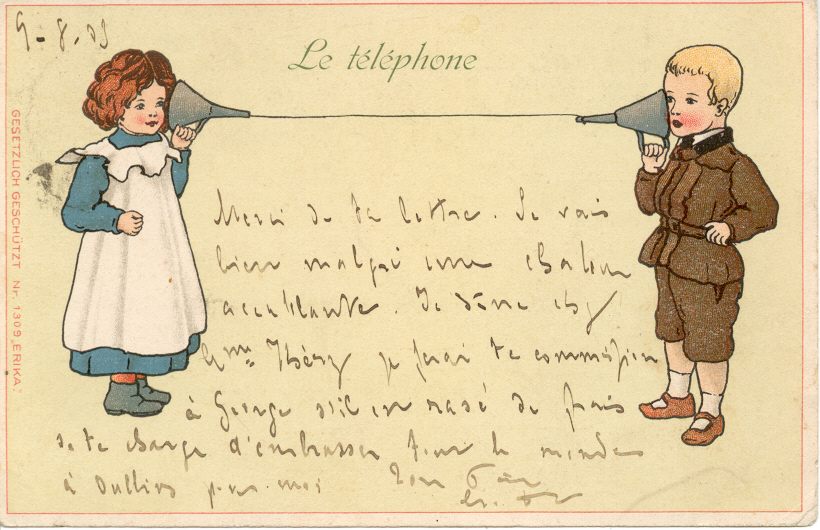 Le téléphone
GESETZLICH GESCHÜTZT Nr. 1309 „ERIKA"
Merci de ta lettre. Je vais
bien malgré une chaleur
accablante. Je dîne chez
Mme Théry je ferai ta commission
à George s'il est rasé de frais
Je te charge d'embrasser tout le monde
à Oullins pour moi Ton